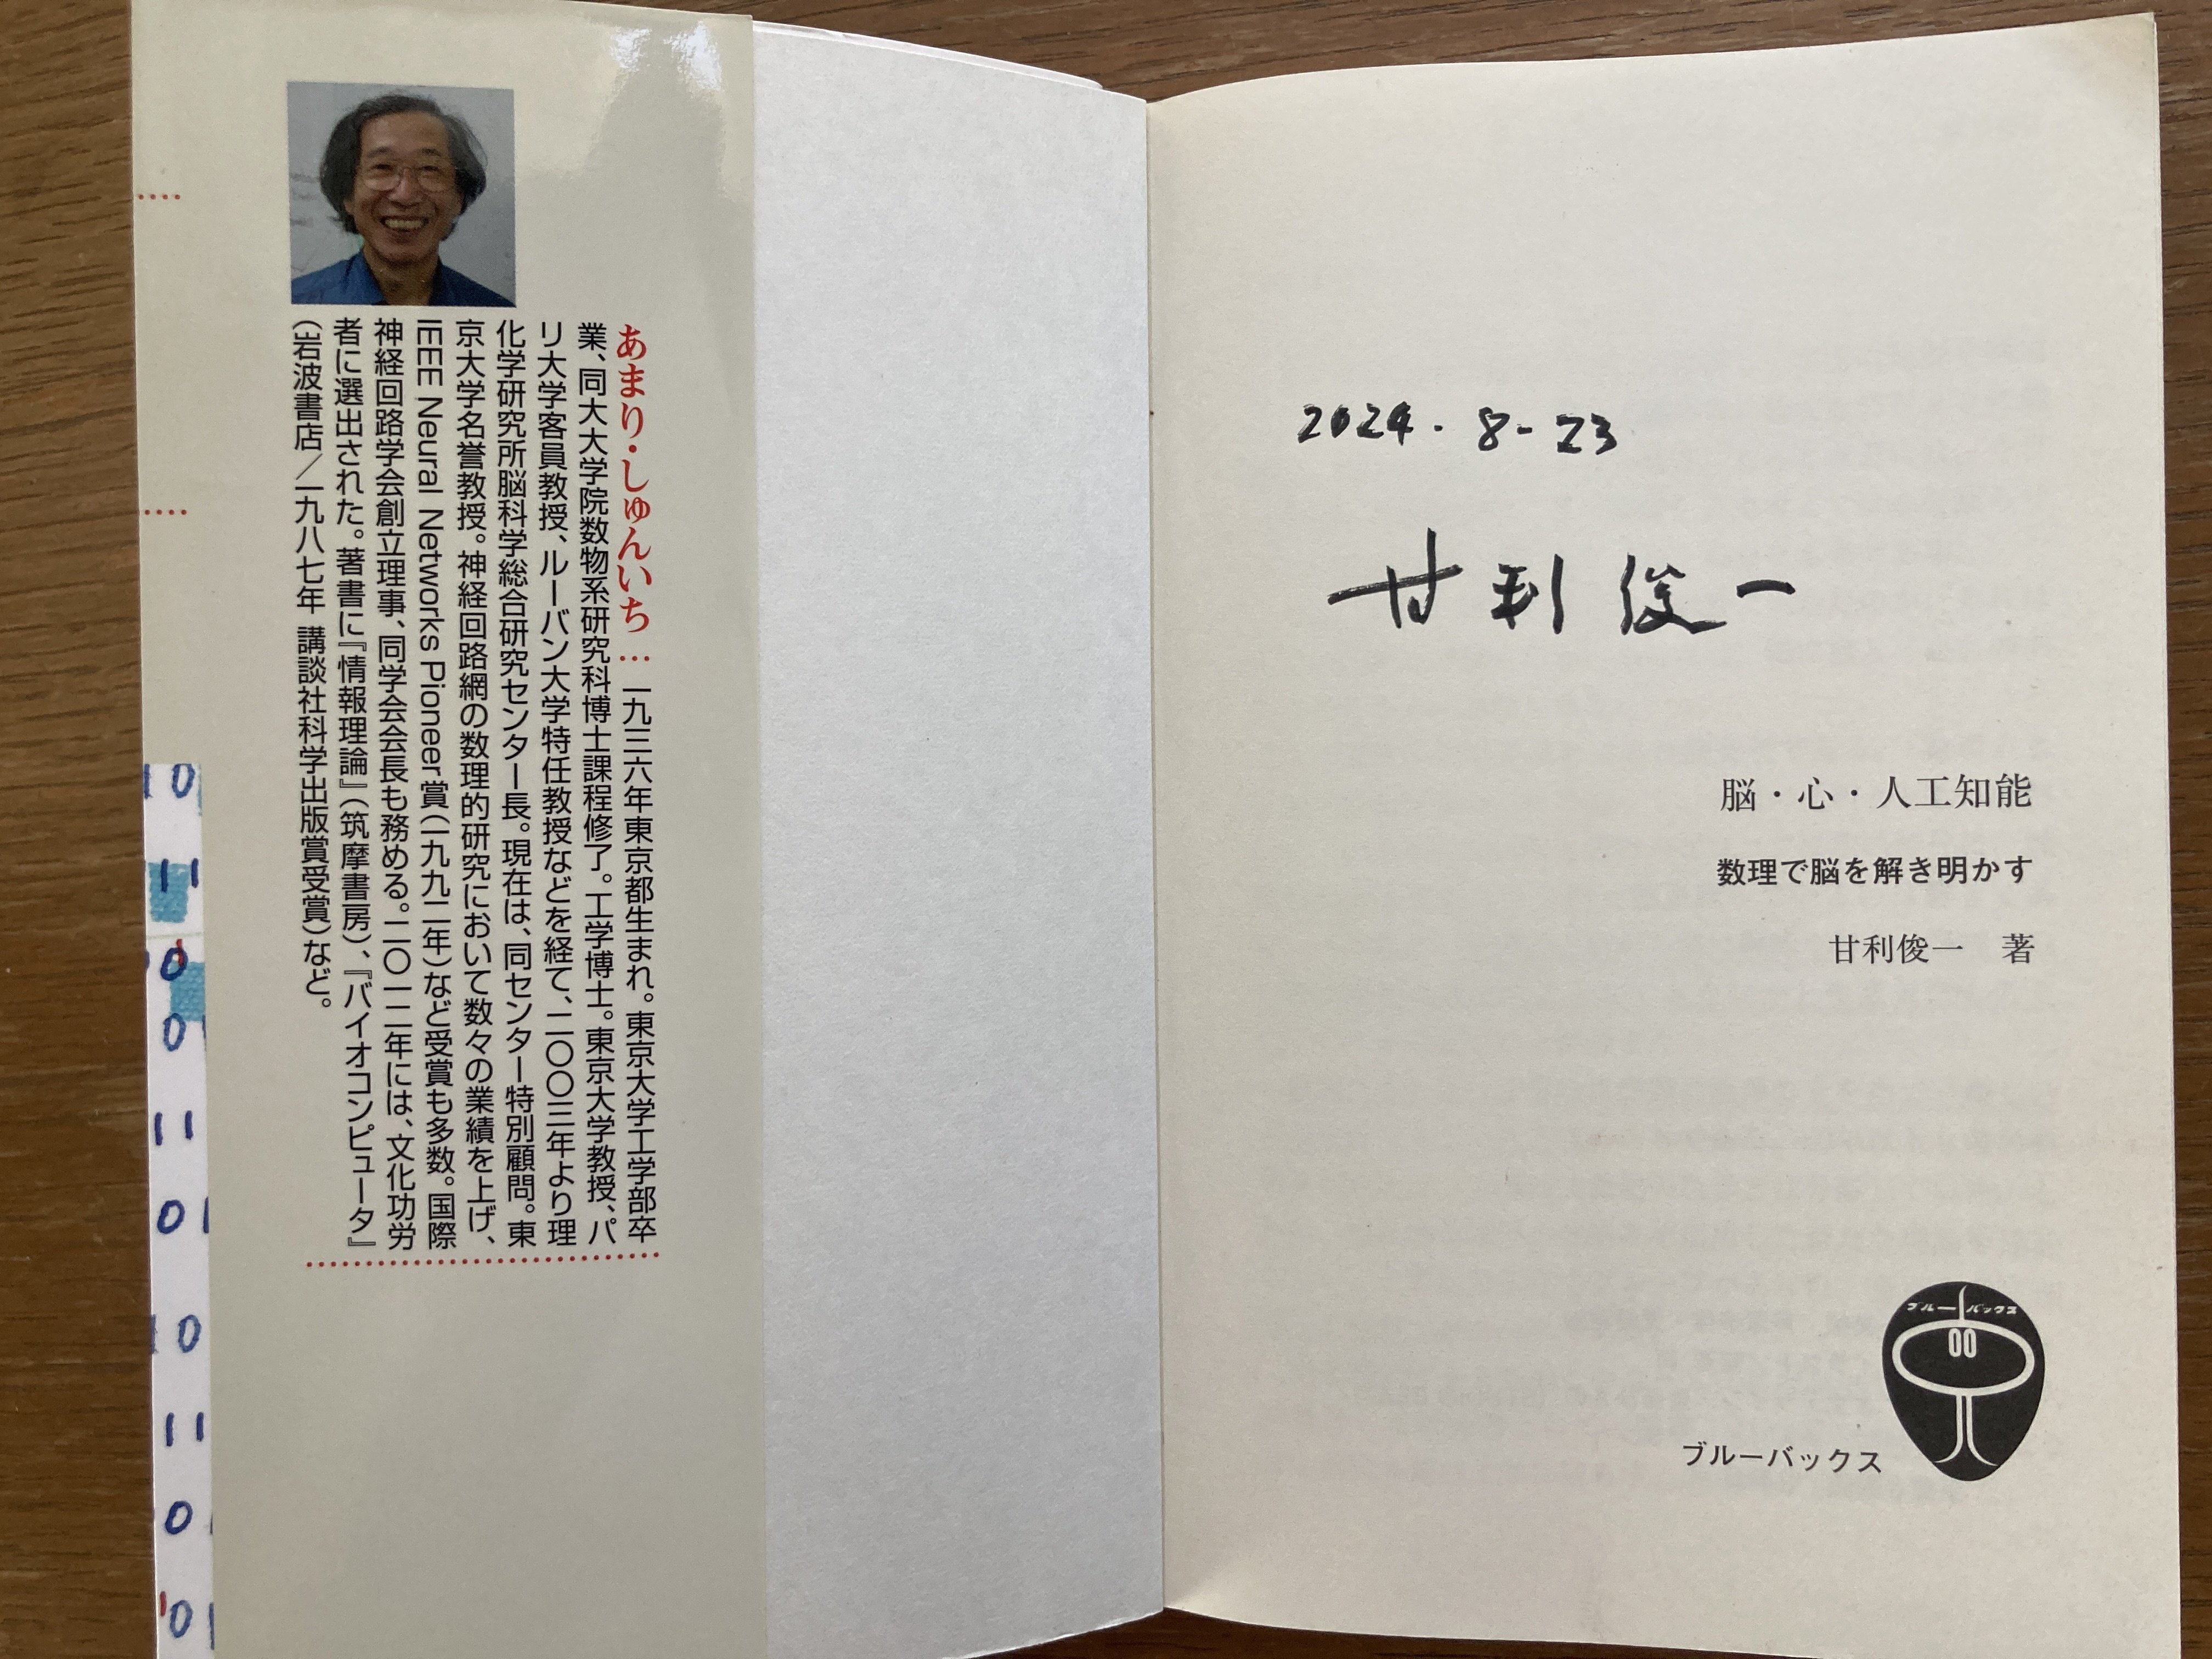 あまり・しゅんいち… 一九三六年東京都生まれ。東京大学工学部卒
業、同大大学院数物系研究科博士課程修了。工学博士。東京大学教授、パ
リ大学客員教授、ルーバン大学特任教授などを経て、二〇〇三年より理
化学研究所脳科学総合研究センター長。現在は、同センター特別顧問。東
京大学名誉教授。神経回路網の数理的研究において数々の業績を上げ、
IEEE Neural Networks Pioneer賞（一九九二年）など受賞も多数。国際
神経回路学会創立理事、同学会会長も務める。二〇一二年には、文化功労
者に選出された。著書に『情報理論』（筑摩書房）、『バイオコンピュータ』
（岩波書店／一九八七年 講談社科学出版賞受賞）など。
10
11
0
0
11
01
10
11
0
10
2024. 8-23
甘利俊一
脳・心・人工知能
数理で脳を解き明かす
甘利俊一 著
ブルーバックス
ブルーバックス